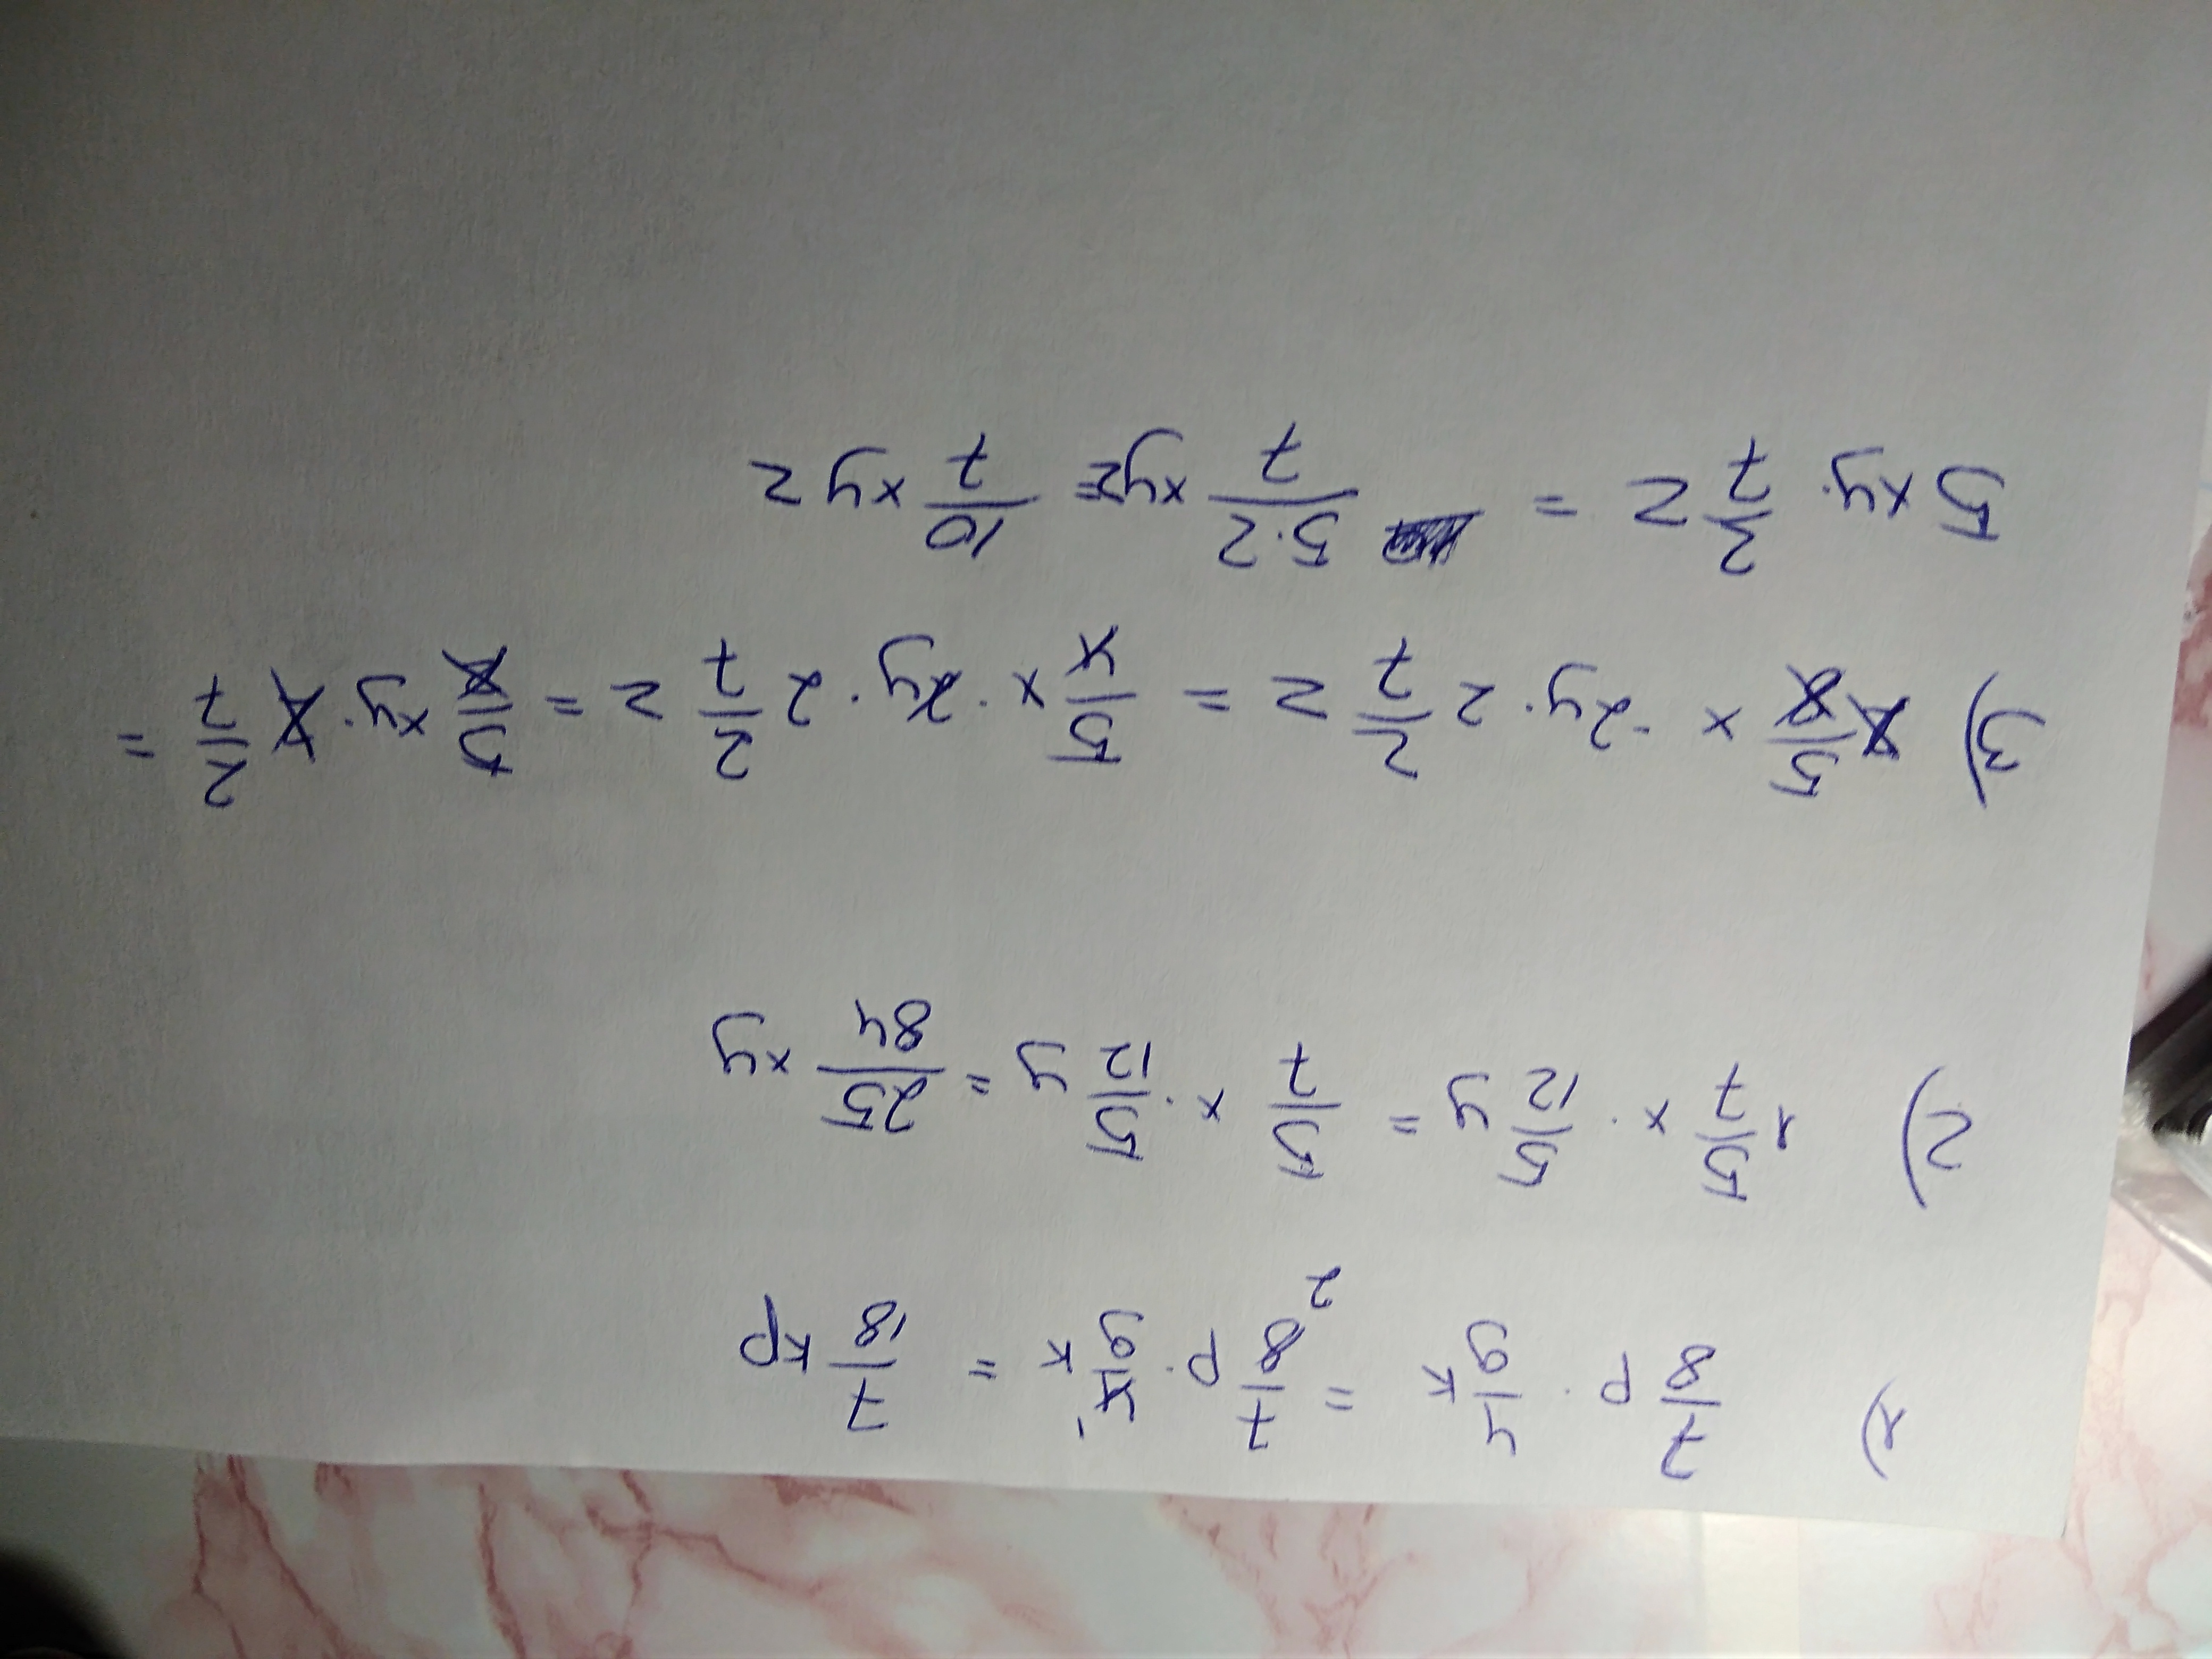 1) 7/8 p · 4/9 k = 7/8 2 p · 4 1/9 k = 7/18 kp
2) 1 5/7 x · 5/12 y = 5/7 x · 5/12 y = 25/84 xy
3) 5/8 x · 2y · 2 2/7 z = 5/4 x · 2y · 2 2/7 z = 5/2 xy · 2/7 =
5xy · 2/7 z = 5·2/7 xyz = 10/7 xyz